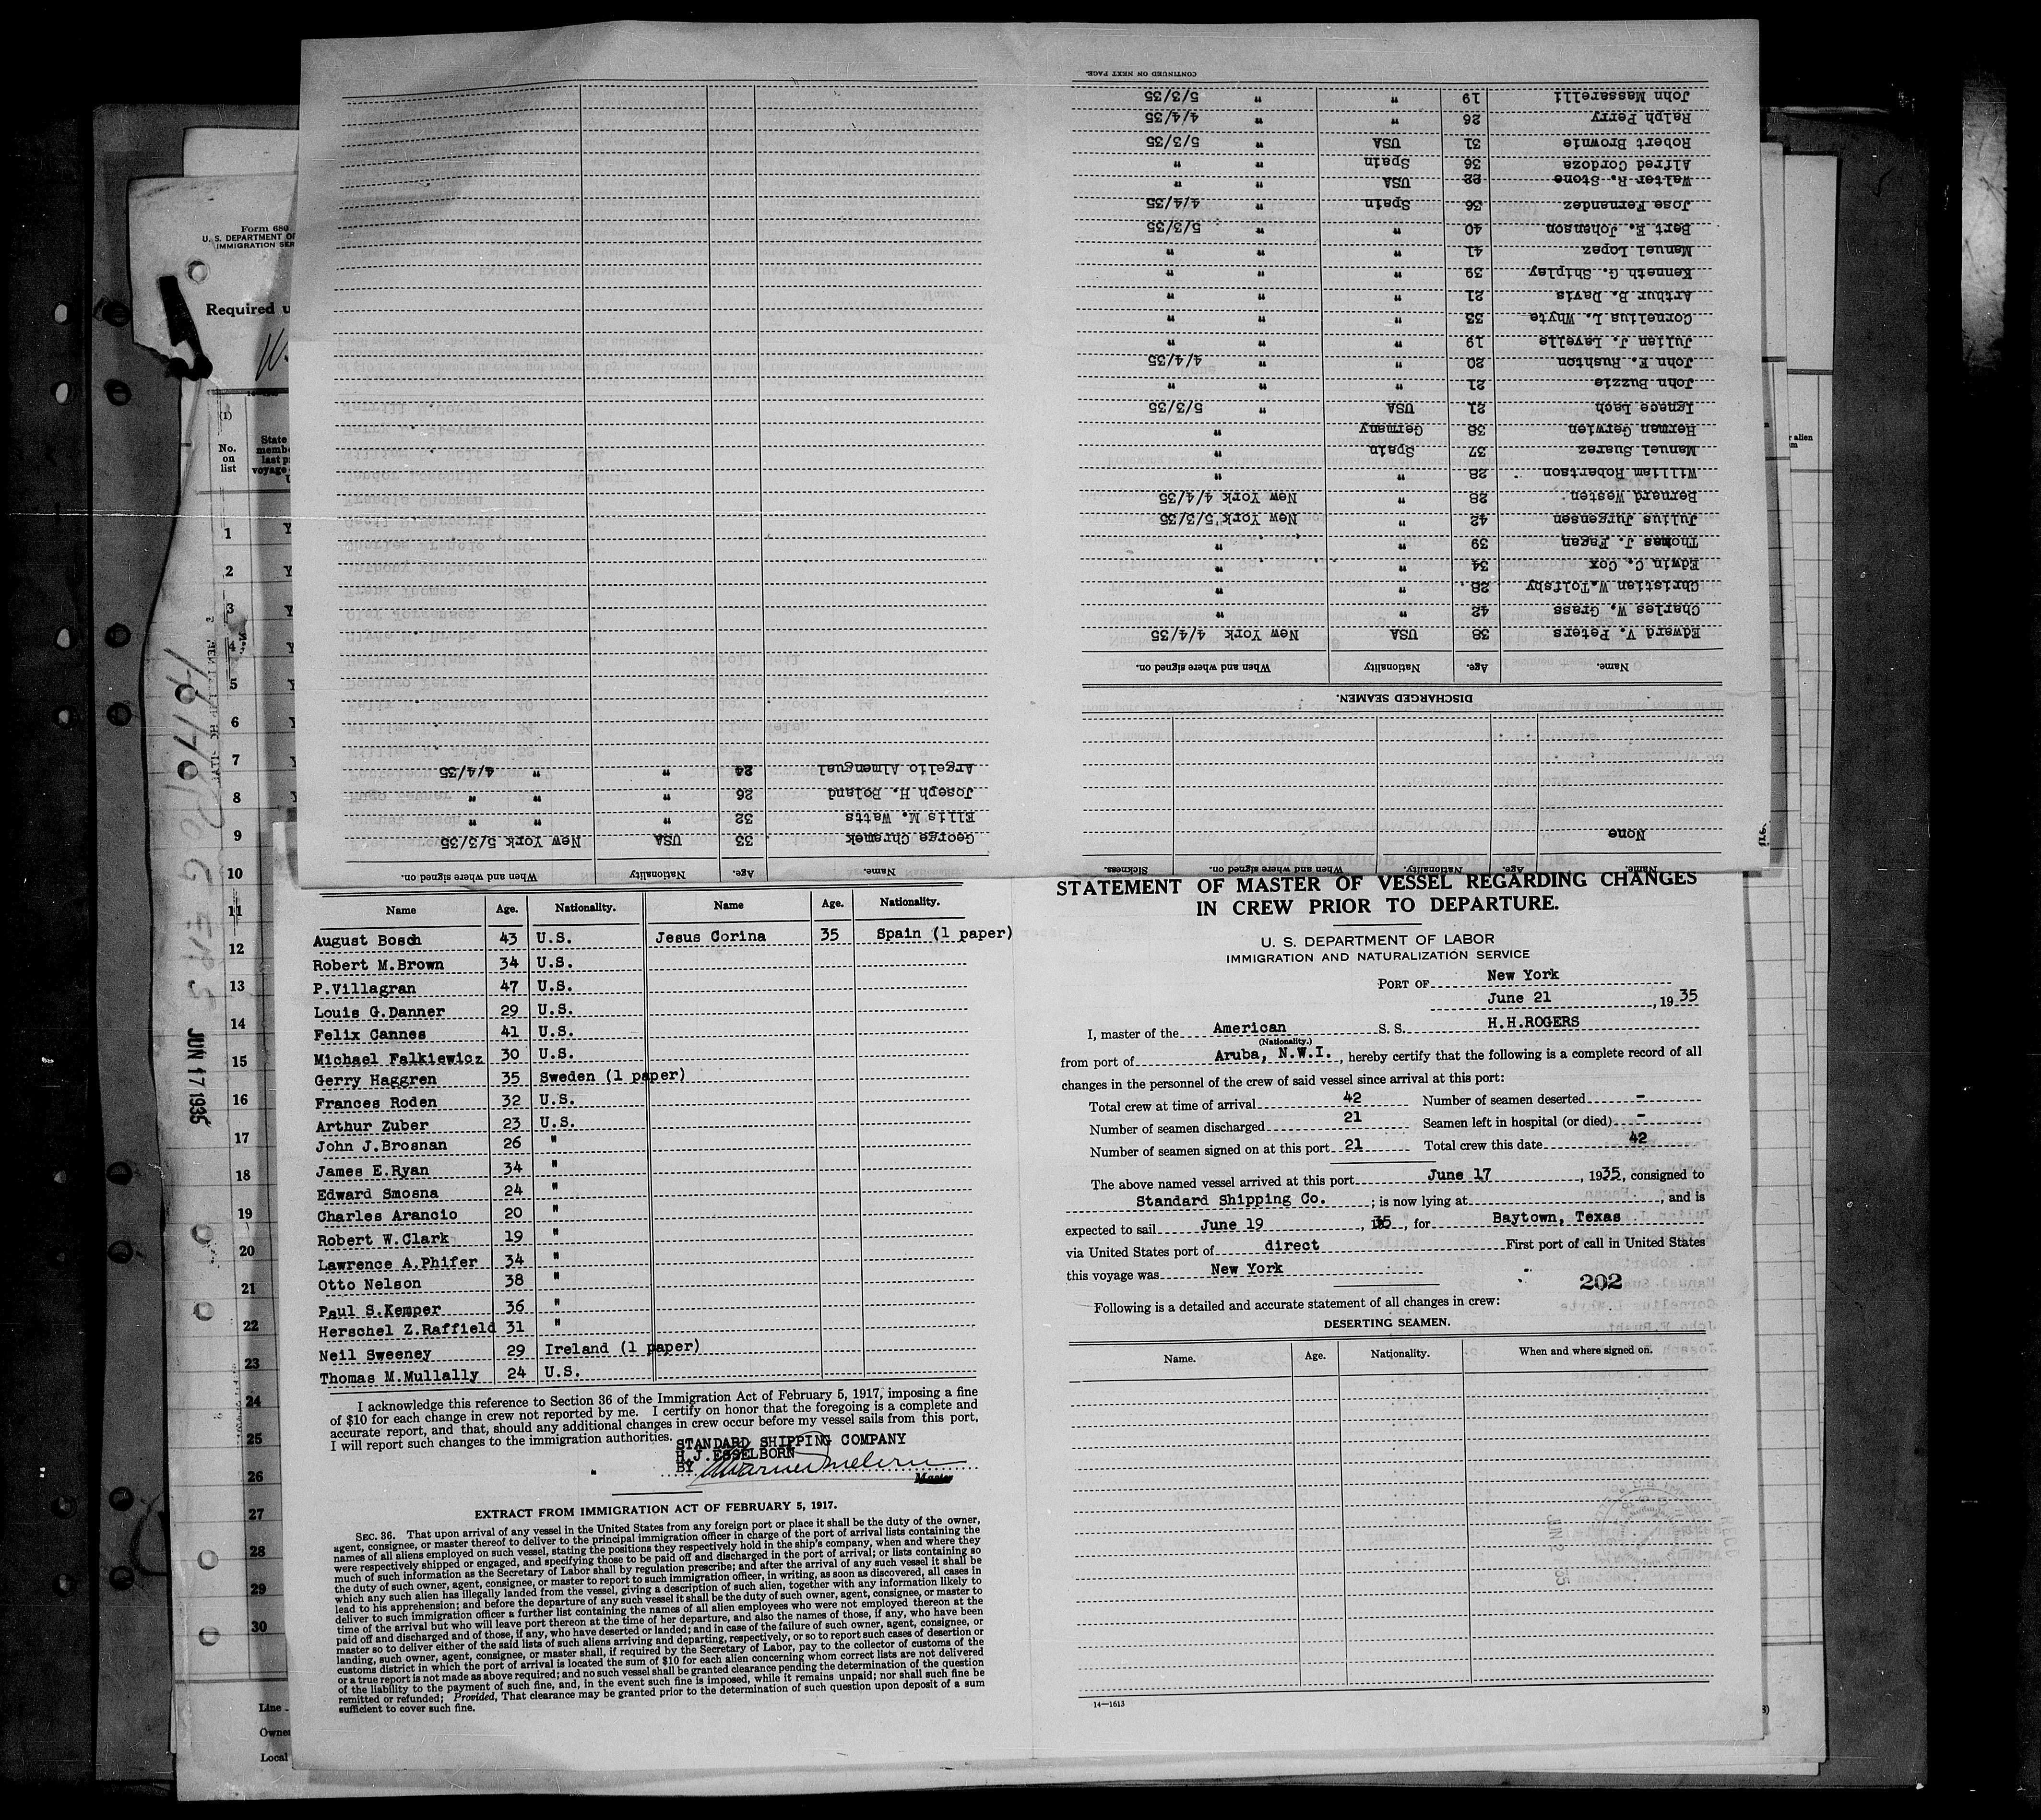 Form 680
U. S. DEPARTMENT OF
IMMIGRATION SER
Required u
(1)
No.
on
list
State
memb
last p
voyage
1
2
3
4
5
6
7
8
9
10
11
12
13
14
15
16
17
18
19
20
21
22
23
24
25
26
27
28
29
30
Line
Owner
Local
JUN 17 1935
r alien
CONTINUED ON NEXT PAGE.
John Massarelli 19 " " 5/3/35
Ralph Perry 26 " " 4/4/35
Robert Brownie 31 USA " 5/3/35
Alfred Cordoza 36 Spain " "
Walter R. Stone 22 USA " "
Jose Fernandez 36 Spain " 4/4/35
Bert E. Johanson 40 " " 5/3/35
Manuel Lopez 41 " " "
Kenneth G. Shiplay 39 " " "
Arthur B. Davis 21 " " "
Cornelius L. Whyte 33 " " "
Julien J. Lavelle 19 " " "
John F. Rushton 20 " " 4/4/35
John Buzzie 21 " " "
Ignace Lach 21 USA " 5/3/35
Herman Gerwien 38 Germany "
Manuel Suarez 37 Spain "
William Robertson 28 " "
Bernard Westen 28 " New York 4/4/35
Julius Jurgensen 42 " New York 5/3/35
Thomas J. Fagan 39 " "
Edwin C. Cox 34 " "
Christian W.Tolfsby 28 " "
Charles W. Grass 42 " "
Edward V. Peters 38 USA New York 4/4/35
Name. Age. Nationality When and where signed on.
DISCHARGED SEAMEN.
None
Name. Age. Nationality. When and where signed on. Sickness.
Argelio Almengual 24 " " 4/4/35
Joseph H. Boland 26 " " "
Ellis M. Watts 32 " " "
George Chramek 33 USA New York 5/3/35
Name. Age. Nationality When and where signed on.
Name Age. Nationality. Name Age. Nationality.
August Bosch 43 U.S. Jesus Corina 35 Spain (1 paper)
Robert M.Brown 34 U.S.
P.Villagran 47 U.S.
Louis G.Danner 29 U.S.
Felix Cannes 41 U.S.
Michael Falkiewicz 30 U.S.
Gerry Haggren 35 Sweden (1 paper)
Frances Roden 32 U.S.
Arthur Zuber 23 U.S.
John J.Brosnan 26 "
James E.Ryan 34 "
Edward Smosna 24 "
Charles Arancio 20 "
Robert W.Clark 19 "
Lawrence A.Phifer 34 "
Otto Nelson 38 "
Paul S.Kemper 36 "
Herschel Z.Raffield 31 "
Neil Sweeney 29 Ireland (1 paper)
Thomas M.Mullally 24 U.S.
I acknowledge this reference to Section 36 of the Immigration Act of February 5, 1917, imposing a fine
of $10 for each change in crew not reported by me. I certify on honor that the foregoing is a complete and
accurate report, and that, should any additional changes in crew occur before my vessel sails from this port,
I will report such changes to the immigration authorities.
STANDARD SHIPPING COMPANY
H.J.ESSELBORN
BY
Master
EXTRACT FROM IMMIGRATION ACT OF FEBRUARY 5, 1917.
SEC. 36. That upon arrival of any vessel in the United States from any foreign port or place it shall be the duty of the owner,
agent, consignee, or master thereof to deliver to the principal immigration officer in charge of the port of arrival lists containing the
names of all aliens employed on such vessel, stating the positions they respectively hold in the ship's company, when and where they
were respectively shipped or engaged, and specifying those to be paid off and discharged in the port of arrival; or lists containing so
much of such information as the Secretary of Labor shall by regulation prescribe; and after the arrival of any such vessel it shall be
the duty of such owner, agent, consignee, or master to report to such immigration officer, in writing, as soon as discovered, all cases in
which any such alien has illegally landed from the vessel, giving a description of such alien, together with any information likely to
lead to his apprehension; and before the departure of any such vessel it shall be the duty of such owner, agent, consignee, or master to
deliver to such immigration officer a further list containing the names of all alien employees who were not employed thereon at the
time of the arrival but who will leave port thereon at the time of her departure, and also the names of those, if any, who have been
paid off and discharged and of those, if any, who have deserted or landed; and in case of the failure of such owner, agent, consignee, or
master so to deliver either of the said lists of such aliens arriving and departing, respectively, or so to report such cases of desertion or
landing, such owner, agent, consignee, or master shall, if required by the Secretary of Labor, pay to the collector of customs of the
customs district in which the port of arrival is located the sum of $10 for each alien concerning whom correct lists are not delivered
or a true report is not made as above required; and no such vessel shall be granted clearance pending the determination of the question
of the liability to the payment of such fine, and, in the event such fine is imposed, while it remains unpaid; nor shall such fine be
remitted or refunded; Provided, That clearance may be granted prior to the determination of such question upon deposit of a sum
sufficient to cover such fine.
STATEMENT OF MASTER OF VESSEL REGARDING CHANGES
IN CREW PRIOR TO DEPARTURE.
U. S. DEPARTMENT OF LABOR
IMMIGRATION AND NATURALIZATION SERVICE
PORT OF New York
June 21, 1935
I, master of the American S. S. H.H.ROGERS
(Nationality.)
from port of Aruba, N.W.I., hereby certify that the following is a complete record of all
changes in the personnel of the crew of said vessel since arrival at this port:
Total crew at time of arrival 42 Number of seamen deserted -
Number of seamen discharged 21 Seamen left in hospital (or died) -
Number of seamen signed on at this port 21 Total crew this date 42
The above named vessel arrived at this port June 17, 1935, consigned to
Standard Shipping Co.; is now lying at , and is
expected to sail June 19, 35, for Baytown, Texas
via United States port of direct First port of call in United States
this voyage was New York
202
Following is a detailed and accurate statement of all changes in crew:
DESERTING SEAMEN.
Name. Age. Nationality. When and where signed on.
14—1613